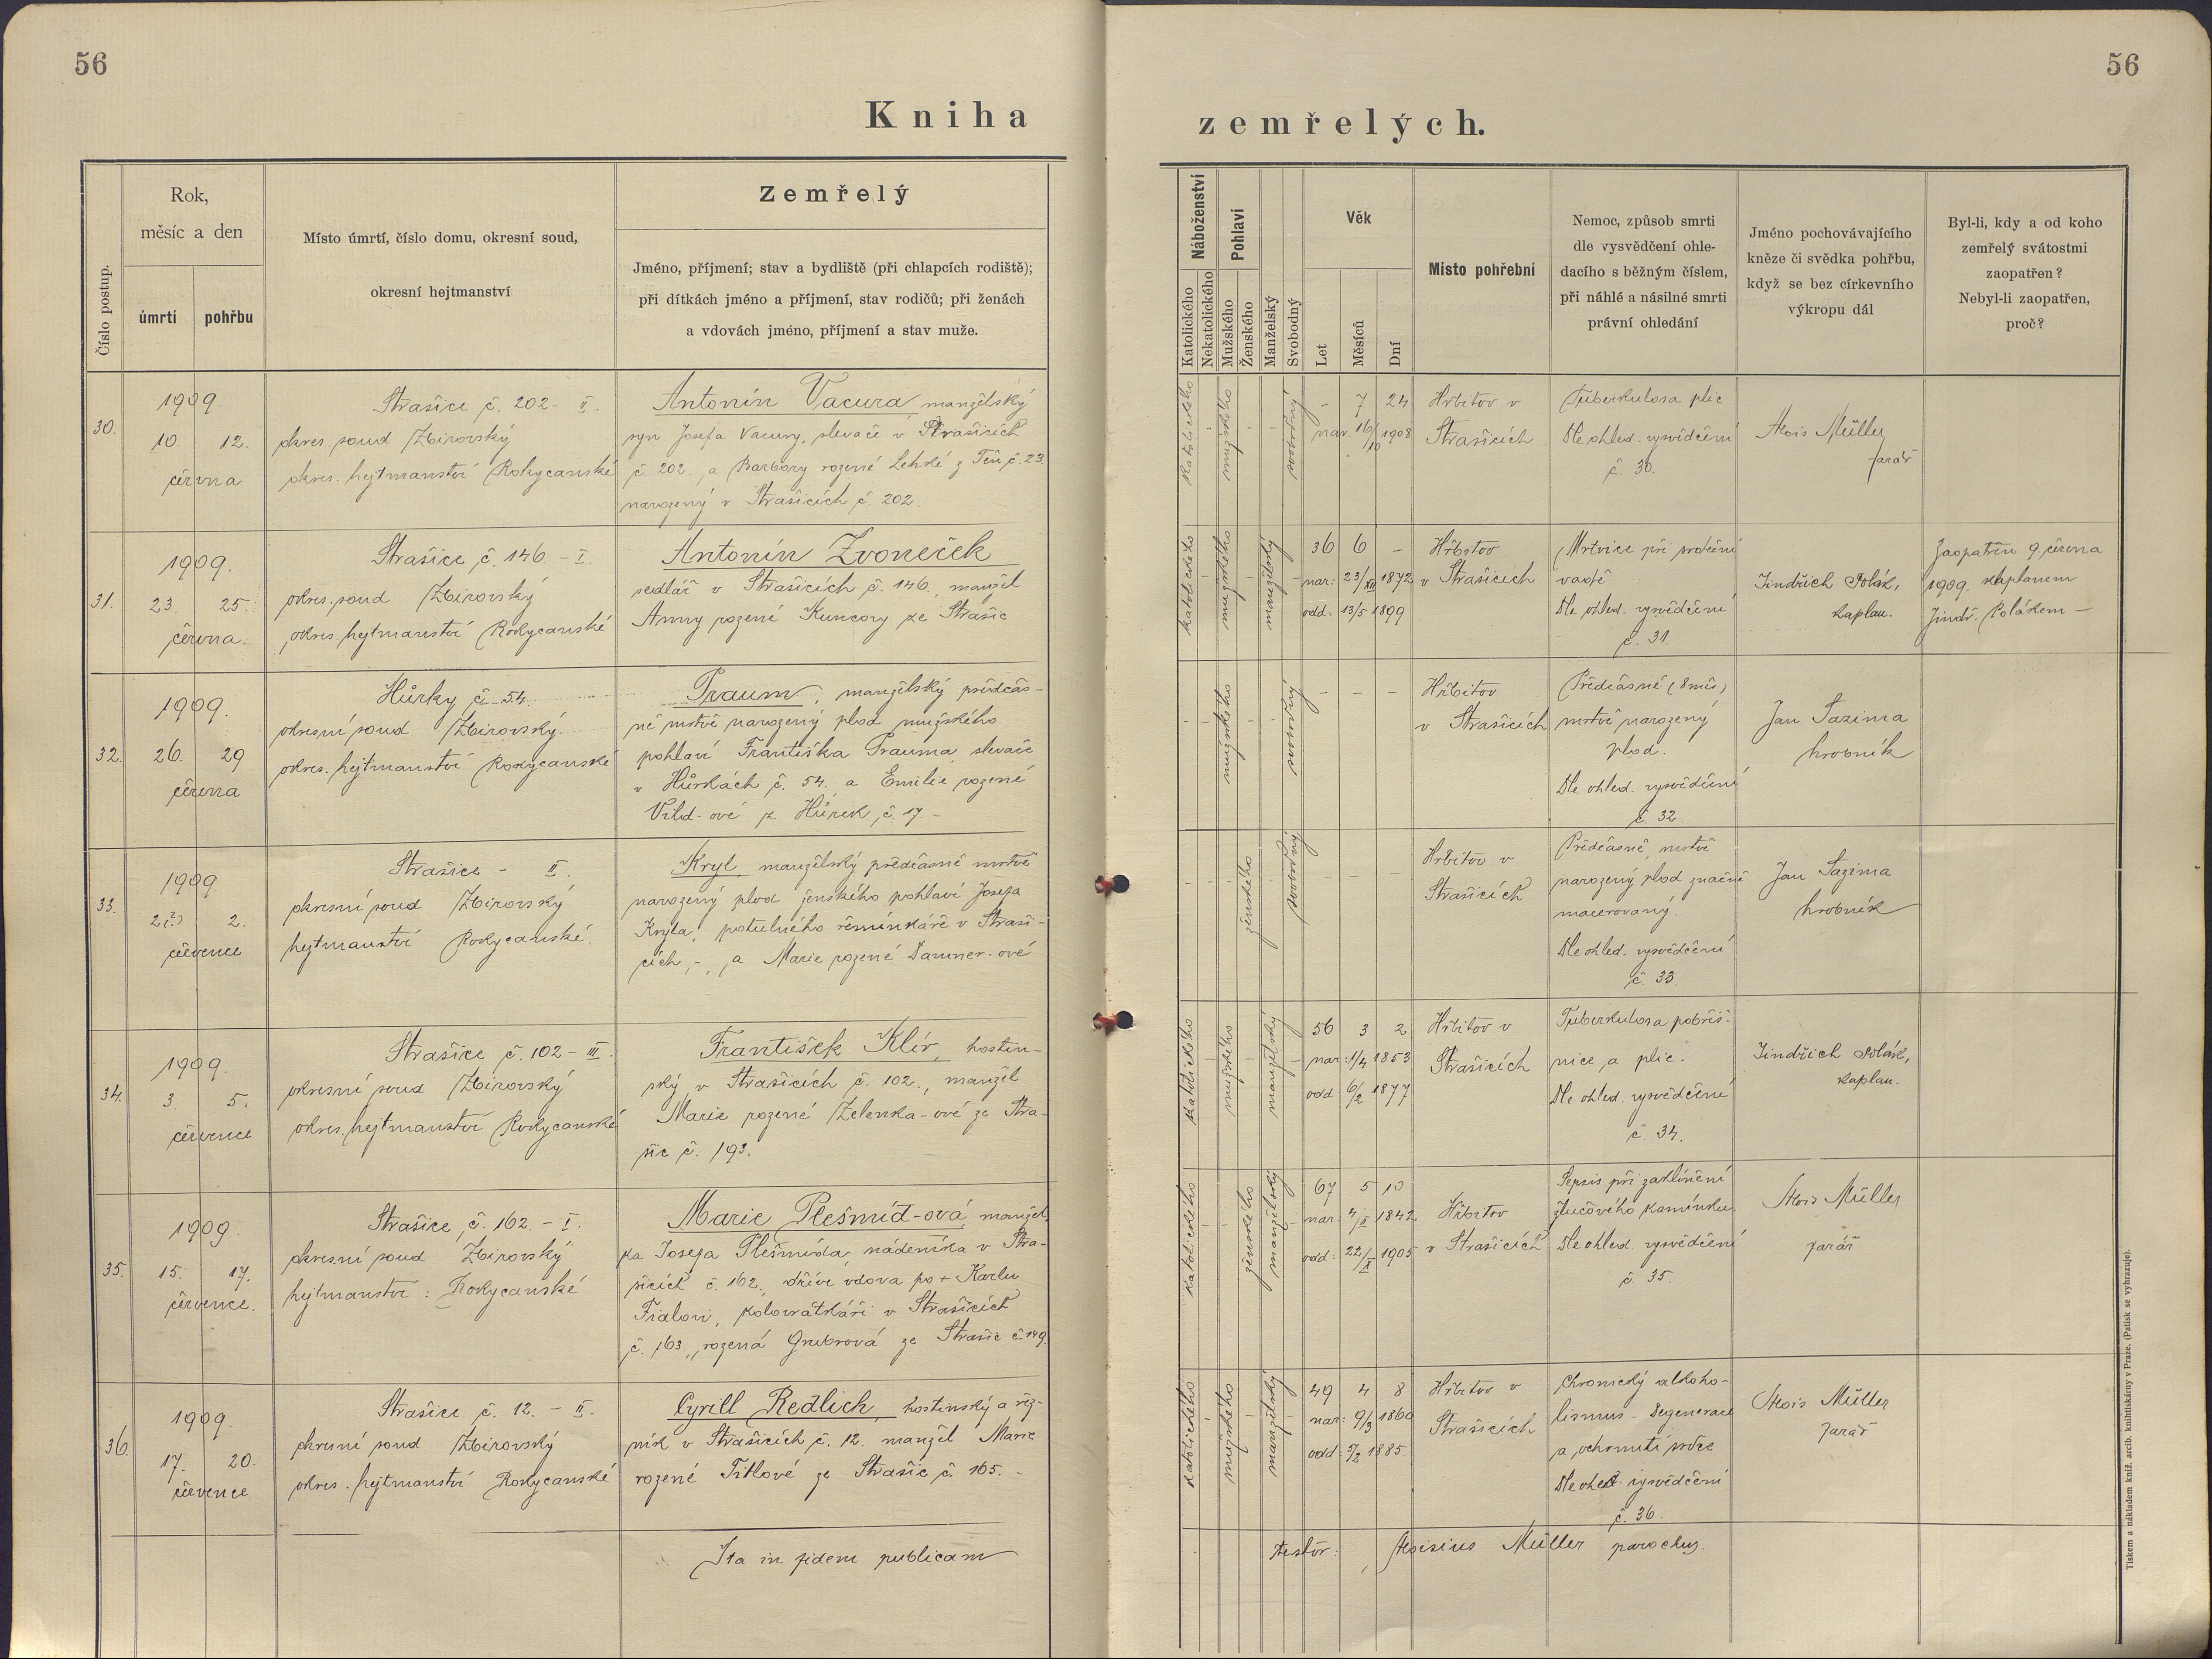 56
56
Kniha zemřelých.
Číslo postup.
Rok,
měsíc a den
úmrtí
pohřbu
Místo úmrtí, číslo domu, okresní soud,
okresní hejtmanství
Zemřelý
Jméno, příjmení; stav a bydliště (při chlapcích rodiště);
při dítkách jméno a příjmení, stav rodičů; při ženách
a vdovách jméno, příjmení a stav muže.
Náboženství
Katolického
Nekatolického
Pohlaví
Mužského
Ženského
Manželský
Svobodný
Věk
Let
Měsíců
Dní
Místo pohřební
Nemoc, způsob smrti
dle vysvědčení ohle-
dacího s běžným číslem,
při náhlé a násilné smrti
právní ohledání
Jméno pochovávajícího
kněze či svědka pohřbu,
když se bez církevního
výkropu dál
Byl-li, kdy a od koho
zemřelý svátostmi
zaopatřen?
Nebyl-li zaopatřen,
proč?
30.
1909.
10. 12.
června
Strašice č. 202 - II.
okres. soud Zbirovský
okres. hejtmanství Rokycanské
Antonín Vacura, manželský
syn Josefa Vacury, slevače v Strašicích
č. 202. a Barbory rozené Lehké z Těň č. 23.
narozený v Strašicích č. 202.
katolického
mužského
svobodný
- 7 24
nar. 16/10 1908
Hřbitov v
Strašicích
Tuberkulosa plic
Dle ohled. vysvědčení
č. 30.
Alois Müller
farář
31.
1909.
23. 25.
června
Strašice č. 146 - I.
okres. soud Zbirovský
okres. hejtmanství Rokycanské
Antonín Zvoneček
sedlář v Strašicích č. 146., manžel
Anny rozené Kuncovy ze Strašic
katolického
mužského
manželský
36 6 -
nar: 23/XII 1872
odd: 13/5 1899
Hřbitov
v Strašicích
Mrtvice při srdeční
vadě
Dle ohled. vysvědčení
č. 31
Jindřich Polák,
kaplan.
Zaopatřen 9. června
1909. kaplanem
Jindř. Polákem -
32.
1909.
26. 29
června
Hůrky č. 54.
okresní soud Zbirovský
okres. hejtmanství Rokycanské
Traum, manželský předčas-
ně mrtvě narozený plod mužského
pohlaví Františka Trauma, slevače
v Hůrkách č. 54., a Emilie rozené
Vild-ové z Hůrek č. 17. -
mužského
svobodný
- - -
Hřbitov
v Strašicích
Předčasně (8 měs)
mrtvě narozený
plod.
Dle ohled. vysvědčení
č. 32.
Jan Sazima
hrobník
33.
1909
2(?) 2.
července
Strašice - II.
okresní soud Zbirovský
hejtmanství Rokycanské.
Kryl, manželský předčasně mrtvě
narozený plod ženského pohlaví Josefa
Kryla, potulného řemínkáře v Straši-
cích, -, a Marie rozené Damner-ové
ženského
svobodný
- - -
Hřbitov v
Strašicích
Předčasně, mrtvě
narozený plod značně
macerovaný.
Dle ohled. vysvědčení
č. 33.
Jan Sazima
hrobník
34.
1909.
3. 5.
července
Strašice č. 102 - III.
okresní soud Zbirovský
okres. hejtmanství Rokycanské
František Klír, hostin-
ský v Strašicích č. 102., manžel
Marie rozené Zelenka-ové ze Stra-
šic č. 193.
katolického
mužského
manželský
56 3 2
nar: 1/4 1853
odd 6/2 1877
Hřbitov v
Strašicích
Tuberkulosa pobřiš-
nice a plic.
Dle ohled. vysvědčení
č. 34.
Jindřich Polák,
kaplan.
35.
1909.
15. 17.
července.
Strašice č. 162. - I.
okresní soud Zbirovský
hejtmanství: Rokycanské
Marie Plešmíd-ová, manžel-
ka Josefa Plešmída, nádeníka v Stra-
šicích č. 162., dříve vdova po + Karlu
Fialovi, kolovrátkáři v Strašicích
č. 163., rozená Grubrová ze Strašic č. 149.
katolického
ženského
manželský
67 5 10
nar 4/II 1842
odd: 22/X 1905
Hřbitov
v Strašicích
Sepsis při zaklínění
žlučového kamínku
Dle ohled. vysvědčení
č. 35.
Alois Müller
farář
36.
1909.
17. 20.
července
Strašice č. 12. - II.
okresní soud Zbirovský
okres. hejtmanství Rokycanské
Cyrill Redlich, hostinský a řez-
ník v Strašicích č. 12. manžel Marie
rozené Titlové ze Strašic č. 165. -
katolického
mužského
manželský
49 4 8
nar: 9/3 1860
odd: 5/2 1885
Hřbitov v
Strašicích
Chronický alkoho-
lismus - Degenerace
a ochrnutí srdce
Dle ohled. vysvědčení
č. 36.
Alois Müller
farář
Ita in fidem publicam
testor: Aloisius Müller parochus.
Tiskem a nákladem kníž. arcib. knihtiskárny v Praze. (Patisk se vyhrazuje).